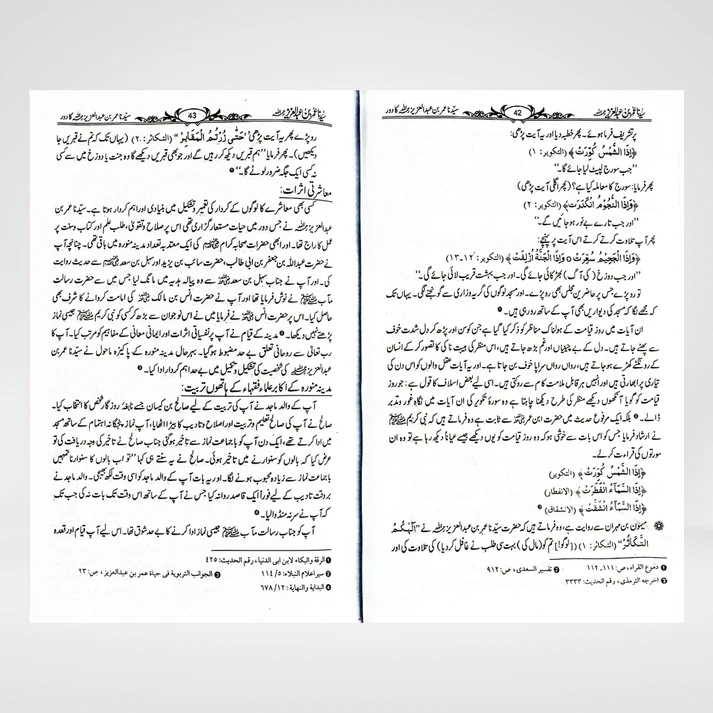 سیّدنا عمر بن عبدالعزیز رحمہ اللہ 42 سیّدنا عمر بن عبدالعزیز رحمہ اللہ کا دور
پر تشریف فرما ہوئے۔ پھر خطبہ دیا اور یہ آیت پڑھی:
﴿اِذَا الشَّمْسُ كُوِّرَتْ﴾ (التکویر: ۱)
’’جب سورج لپیٹ لیا جائے گا۔‘‘
پھر فرمایا: سورج کا معاملہ کیا ہے؟ (پھر اگلی آیت پڑھی)
﴿وَاِذَا النُّجُوْمُ انْكَدَرَتْ﴾ (التکویر: ۲)
’’اور جب تارے بے نور ہو جائیں گے۔‘‘
پھر آپ تلاوت کرتے کرتے اس آیت پر پہنچے:
﴿وَاِذَا الْجَحِيْمُ سُعِّرَتْ ٥ وَاِذَا الْجَنَّةُ اُزْلِفَتْ﴾ (التکویر: ۱۲۔۱۳)
’’اور جب دوزخ (کی آگ) بھڑکائی جائے گی۔ اور جب بہشت قریب لائی جائے گی۔‘‘
تو رو پڑے۔ پھر جس پر حاضرین مجلس بھی رو پڑے۔ اور مسجد لوگوں کی گریہ وزاری سے گونجنے لگی۔ یہاں تک
کہ مجھے لگا کہ مسجد کی دیواریں بھی آپ کے ساتھ رو رہی ہیں۔ ❶
ان آیات میں روز قیامت کے ہولناک مناظر کو ذکر کیا گیا ہے جن کو سن اور پڑھ کر دل شدت خوف
سے پھٹے جاتے ہیں۔ دل کے بے چینیاں اور غم بڑھ جاتے ہیں، اس منظر کی ہیبت ناکی کا تصور کر کے انسان
کے رونگٹے کھڑے ہو جاتے ہیں، رواں رواں سراپا خوف بن جاتا ہے۔ اور یہ آیات عقل والوں کو اس دن کی
تیاری پر ابھارتی ہیں اور انہیں ہر قابل ملامت کام سے روکتی ہیں۔ اسی لیے بعض اسلاف کا قول ہے: جو روز
قیامت کو گویا آنکھوں دیکھے منظر کی طرح دیکھنا چاہتا ہے وہ سورۂ تکویر کی ان آیات میں نگاہِ غور و تدبر
ڈالے۔ ❷ بلکہ ایک مرفوع حدیث میں حضرت ابن عمر رضی اللہ عنہ سے ثابت ہے وہ فرماتے ہیں کہ نبی کریم ﷺ
نے ارشاد فرمایا جو اس بات سے خوشی ہو کہ وہ روز قیامت کو یوں دیکھے جیسے عیاناً دیکھ رہا ہے تو وہ ان
سورتوں کی قراءت کرلے۔
﴿اِذَا الشَّمْسُ كُوِّرَتْ﴾ (التکویر)
﴿اِذَا السَّمَآءُ انْفَطَرَتْ﴾ (الانفطار)
﴿اِذَا السَّمَآءُ انْشَقَّتْ﴾ (الانشقاق) ❸
میمون بن مہران سے روایت ہے، وہ فرماتے ہیں کہ حضرت سیّدنا عمر بن عبدالعزیز رحمہ اللہ نے ’’اَلْهٰىكُمُ
التَّكَاثُرُ‘‘ (التکاثر: ۱) (([لوگو!] تم کو (مال کی) بہت سی طلب نے غافل کر دیا) کی تلاوت کی اور
❶ دموع القراء، ص: ۱۱۱۔۱۱۲ ❷ تفسیر السعدی، ص: ۹۱۲
❸ اخرجه الترمذی، رقم الحدیث: ۳۳۳۳
سیّدنا عمر بن عبدالعزیز رحمہ اللہ 43 سیّدنا عمر بن عبدالعزیز رحمہ اللہ کا دور
رو پڑے پھر یہ آیت پڑھی ’’حَتّٰى زُرْتُمُ الْمَقَابِرَ‘‘ (التکاثر: ۲) (یہاں تک کہ تم نے قبریں جا
دیکھیں)۔ پھر فرمایا ’’ہم قبریں دیکھ کر رہیں گے اور جو بھی قبریں دیکھے گا وہ جنت یا دوزخ میں سے کسی
نہ کسی ایک جگہ ضرور لوٹے گا۔‘‘ ❶
معاشرتی اثرات:
کسی بھی معاشرے کا لوگوں کے کردار کی تعمیر و تشکیل میں بنیادی اور اہم کردار ہوتا ہے۔ سیّدنا عمر بن
عبدالعزیز رحمہ اللہ نے جس دور میں حیات مستعار گزاری تھی اس پر صلاح و تقویٰ، طلب علم اور کتاب و سنت پر
عمل کا راج تھا۔ اور ابھی حضرات صحابہ کرام رضی اللہ عنہم کی ایک معتد بہ تعداد مدینہ منورہ میں باقی تھی۔ چنانچہ آپ
نے حضرت عبداللہ بن جعفر بن ابی طالب، حضرت سائب بن یزید اور سہل بن سعد رضی اللہ عنہم سے حدیث روایت
کی۔ اور آپ نے جناب سہل بن سعد رضی اللہ عنہ سے وہ پیالہ ہدیہ میں مانگ لیا جس میں سے حضرت رسالت
مآب ﷺ نے نوش فرمایا تھا اور آپ نے حضرت انس بن مالک رضی اللہ عنہ کی امامت کروانے کا شرف بھی
حاصل کیا۔ اس پر حضرت انس رضی اللہ عنہ نے فرمایا میں نے اس نوجوان سے بڑھ کر کسی کو نبی کریم ﷺ جیسی نماز
پڑھتے نہیں دیکھا۔ ❷ مدینہ کے قیام نے آپ پر نفسیاتی اثرات اور ایمانی معانی کے مفاہیم کو مرتب کیا۔ آپ کا
رب تعالیٰ سے روحانی تعلق بے حد مضبوط ہو گیا۔ بہر حال مدینہ منورہ کے پاکیزہ ماحول نے سیّدنا عمر بن
عبدالعزیز رحمہ اللہ کی شخصیت کی تشکیل و تکمیل میں بے حد اہم کردار ادا کیا۔ ❸
مدینہ منورہ کے اکابر علماء فقہاء کے ہاتھوں تربیت:
آپ کے والد ماجد نے آپ کی تربیت کے لیے صالح بن کیسان جیسے نابغۂ روزگار شخص کا انتخاب کیا۔
صالح نے آپ کی صالح تعلیم و تربیت اور اصلاح و تادیب کا بیڑا اٹھایا، آپ نماز پنج گانہ اہتمام کے ساتھ مسجد
میں ادا کرتے تھے، ایک دن آپ کو باجماعت نماز سے تاخیر ہو گئی جناب صالح نے تاخیر کی وجہ دریافت کی تو
عرض کیا کہ بالوں کو سنوارنے میں تاخیر ہوئی۔ صالح نے یہ سنتے ہی کہا ’’تو اب بالوں کا سنوارنا تمہیں
باجماعت نماز سے زیادہ محبوب ہونے لگا۔ اور یہ بات آپ کے والد ماجد کو اسی وقت لکھ بھیجی۔ والد ماجد نے
بروقت تادیب کے لیے فوراً ایک قاصد روانہ کیا جس نے آپ کے ساتھ اس وقت تک بات نہ کی جب تک
کہ آپ نے سر نہ منڈوا لیا۔ ❹
آپ کو جناب رسالت مآب ﷺ جیسی نماز ادا کرنے کا بے حد شوق تھا۔ اس لیے آپ قیام اور قعدہ
❶ الرقة والبکاء لابن ابی الدنیا، رقم الحدیث: ۴۲۵
❷ سیر اعلام النبلاء: ۵/۱۱۴ ❸ الجوانب التربوية فی حیاة عمر بن عبدالعزیز، ص: ۲۳
❹ البدایة والنهایة: ۱۲/۶۷۸